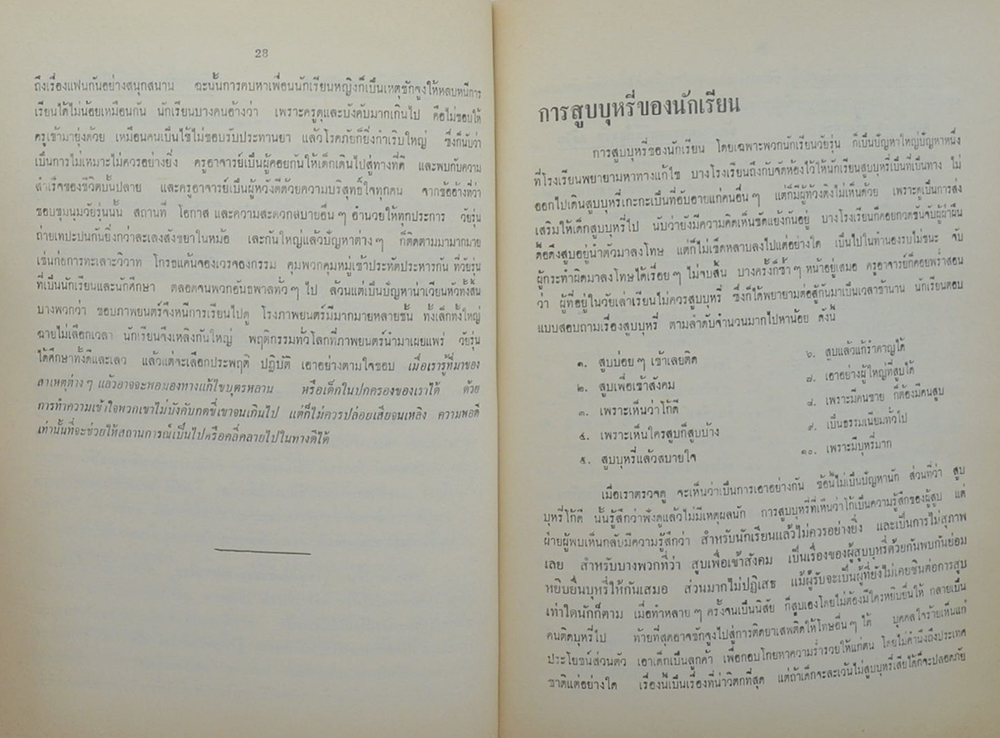 28
ถึงเรื่องแฟนกันอย่างสนุกสนาน ฉะนั้นการคบหาเพื่อนนักเรียนหญิงก็เป็นเหตุชักจูงให้หลบหนีการ
เรียนได้ไม่น้อยเหมือนกัน นักเรียนบางคนอ้างว่า เพราะครูดุและบังคับมากเกินไป คือไม่ชอบให้
ครูเข้ามายุ่งด้วย เหมือนคนเป็นไข้ไม่ชอบรับประทานยา แล้วโรคภัยก็ยิ่งกำเริบใหญ่ ซึ่งก็นับว่า
เป็นการไม่เหมาะไม่ควรอย่างยิ่ง ครูอาจารย์เป็นผู้คอยกันให้เด็กเดินไปสู่ทางที่ดี และพบกับความ
สำเร็จของชีวิตบั้นปลาย และครูอาจารย์เป็นผู้หวังดีด้วยความบริสุทธิ์ใจทุกคน จากข้ออ้างที่ว่า
ชอบชุมนุมวัยรุ่นนั้น สถานที่ โอกาส และความสะดวกสบายอื่น ๆ อำนวยให้ทุกประการ วัยรุ่น
ถ่ายเทปะปนกันยิ่งกว่าละเลงสังขยาในหม้อ และกันใหญ่แล้วปัญหาต่าง ๆ ก็ติดตามมามากมาย
เช่นก่อการทะเลาะวิวาท โกรธแค้นจองเวรจองกรรม คุมพวกคุมหมู่เข้าประหัตประหารกัน ที่วัยรุ่น
ที่เป็นนักเรียนและนักศึกษา ตลอดจนพวกอันธพาลทั่ว ๆ ไป ล้วนแต่เป็นปัญหาน่าเวียนหัวทั้งสิ้น
บางพวกว่า ชอบภาพยนตร์จึงหนีการเรียนไปดู โรงภาพยนตร์มีมากมายหลายชั้น ทั้งเล็กทั้งใหญ่
ฉายไม่เลือกเวลา นักเรียนจึงเหลิงกันใหญ่ พฤติกรรมทั่วโลกที่ภาพยนตร์นำมาเผยแพร่ วัยรุ่น
ได้ศึกษาทั้งดีและเลว แล้วแต่จะเลือกประพฤติ ปฏิบัติ เอาอย่างตามใจชอบ เมื่อเรารู้ที่มาของ
สาเหตุต่าง ๆ แล้วอาจจะพอมองทางแก้ไขบุตรหลาน หรือเด็กในปกครองของเราได้ ด้วย
การทำความเข้าใจพวกเขาไม่บังคับกดขี่เขาจนเกินไป แต่ก็ไม่ควรปล่อยเสียจนเหลิง ความพอดี
เท่านั้นที่จะช่วยให้สถานการณ์เป็นไปหรือคลี่คลายไปในทางดีได้
การสูบบุหรี่ของนักเรียน
การสูบบุหรี่ของนักเรียน โดยเฉพาะพวกนักเรียนวัยรุ่น ก็เป็นปัญหาใหญ่ปัญหาหนึ่ง
ที่โรงเรียนพยายามหาทางแก้ไข บางโรงเรียนถึงกับจัดห้องไว้ให้นักเรียนสูบบุหรี่เป็นที่เป็นทาง ไม่
ออกไปเดินสูบบุหรี่เกะกะเป็นที่อับอายแก่คนอื่น ๆ แต่ก็มีผู้ท้วงติงไม่เห็นด้วย เพราะดูเป็นการส่ง
เสริมให้เด็กสูบบุหรี่ไป นับว่ายังมีความคิดเห็นขัดแย้งกันอยู่ บางโรงเรียนก็คอยกวดขันจับผู้ฝ่าฝืน
ดื้อดึงสูบอยู่นำตัวมาลงโทษ แต่ก็ไม่เข็ดหลาบลงไปแต่อย่างใด เป็นไปในทำนองรบไม่ชนะ จับ
ผู้กระทำผิดมาลงโทษได้เรื่อย ๆ ไม่จบสิ้น บางครั้งก็ซ้ำ ๆ หน้าอยู่เสมอ ครูอาจารย์ก็คอยพร่ำสอน
ว่า ผู้ที่อยู่ในวัยเล่าเรียนไม่ควรสูบบุหรี่ ซึ่งก็ได้พยายามต่อสู้กันมาเป็นเวลาช้านาน นักเรียนตอบ
แบบสอบถามเรื่องสูบบุหรี่ ตามลำดับจำนวนมากไปหาน้อย ดังนี้
๑. สูบบ่อย ๆ เข้าเลยติด
๒. สูบเพื่อเข้าสังคม
๓. เพราะเห็นว่าโก้ดี
๔. เพราะเห็นใครสูบก็สูบบ้าง
๕. สูบบุหรี่แล้วสบายใจ
๖. สูบแล้วแก้รำคาญได้
๗. เอาอย่างผู้ใหญ่ที่สูบได้
๘. เพราะมีคนขาย ก็ต้องมีคนสูบ
๙. เป็นธรรมเนียมทั่วไป
๑๐. เพราะมีบุหรี่มาก
เมื่อเราตรวจดู จะเห็นว่าเป็นการเอาอย่างกัน ข้อนี้ไม่เป็นปัญหานัก ส่วนที่ว่า สูบ
บุหรี่โก้ดี นั้นรู้สึกว่าฟังดูแล้วไม่มีเหตุผลนัก การสูบบุหรี่ที่เห็นว่าโก้เป็นความรู้สึกของผู้สูบ แต่
ฝ่ายผู้พบเห็นกลับมีความรู้สึกว่า สำหรับนักเรียนแล้วไม่ควรอย่างยิ่ง และเป็นการไม่สุภาพ
เลย สำหรับบางพวกที่ว่า สูบเพื่อเข้าสังคม เป็นเรื่องของผู้สูบบุหรี่ด้วยกันพบกันย่อม
หยิบยื่นบุหรี่ให้กันเสมอ ส่วนมากไม่ปฏิเสธ แม้ผู้รับจะเป็นผู้ที่ยังไม่เคยชินต่อการสูบ
เท่าใดนักก็ตาม เมื่อทำหลาย ๆ ครั้งจนเป็นนิสัย ก็สูบเองโดยไม่ต้องมีใครหยิบยื่นให้ กลายเป็น
คนติดบุหรี่ไป ท้ายที่สุดอาจชักจูงไปสู่การติดยาเสพติดให้โทษอื่น ๆ ได้ บุคคลใจร้ายเห็นแก่
ประโยชน์ส่วนตัว เอาเด็กเป็นลูกค้า เพื่อกอบโกยหาความร่ำรวยให้แก่ตน โดยไม่คำนึงถึงประเทศ
ชาติแต่อย่างใด เรื่องนี้เป็นเรื่องที่น่าวิตกที่สุด แต่ถ้าเด็กจะละเว้นไม่สูบบุหรี่เสียได้ก็จะปลอดภัย